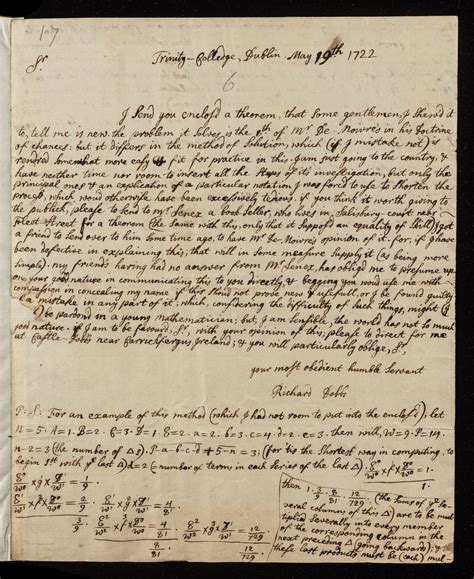 107
Trinity-Colledge, Dublin May 19th 1722
Sr.
6
I Send you enclos'd a theorem, that Some gentlemen, I Shew'd it
to, tell me is new. the problem it Solves, is the 9th of Mr De-Moivre's in his Doctrine
of chances: but it differs in the method of Solution, which (if I mistake not) is
rendred Somewhat more easy & fit for practice in this. I am just going to the country, &
have neither time nor room to insert all the Steps of its investigation, but only the
principal ones & an explication of a particular notation I was forced to use to Shorten the
process, which wou'd otherwise have been excessively tedious. if you think it worth giving to
the publick, please to Send to Mr Senex a book Seller, who lives in Salisbury-court near
Fleet Street for a theorem (the Same with this, only that it Supposes an equality of Skill) I got
a friend to Send over to him Some time ago, to have Mr De-Moivre's opinion of it. for, if I have
been defective in explaining this; that will in Some measure Supply it (as being more
Simple). my friends having had no answer from Mr Senex, has oblig'd me to presume upon
your good nature in communicating this to you directly; & begging you wou'd use me with
compassion in concealing my name if this Shou'd not prove new & usefull, or I be found guilty
of a mistake in any part of it: which, considering the difficulty of Such things, might
be pardon'd in a young mathematician; but, I am Sensible, the world has not So much
good nature. if I am to be favour'd, Sr, with your opinion of this; please to direct for me
at Castle-Dobbs near Carrickfergus, Ireland; & you will particularly oblige, Sr,
your most obedient humble Servant
Richard Dobbs
P:S: For an example of this method (which I had not room to put into the enclos'd); let
n=5. A=1. B=2.
then will, W=9.
n-2=3 (the number of Δs).
(for the Shortest way in computing, to
begin 1st with ye last Δ)
(the Sums of ye Se-
veral columns of this Δ) are to be mul-
tiplied Severally into every member
of the corresponding column in the
next preceding Δ (going backward); &
these last products must be (each) mul-